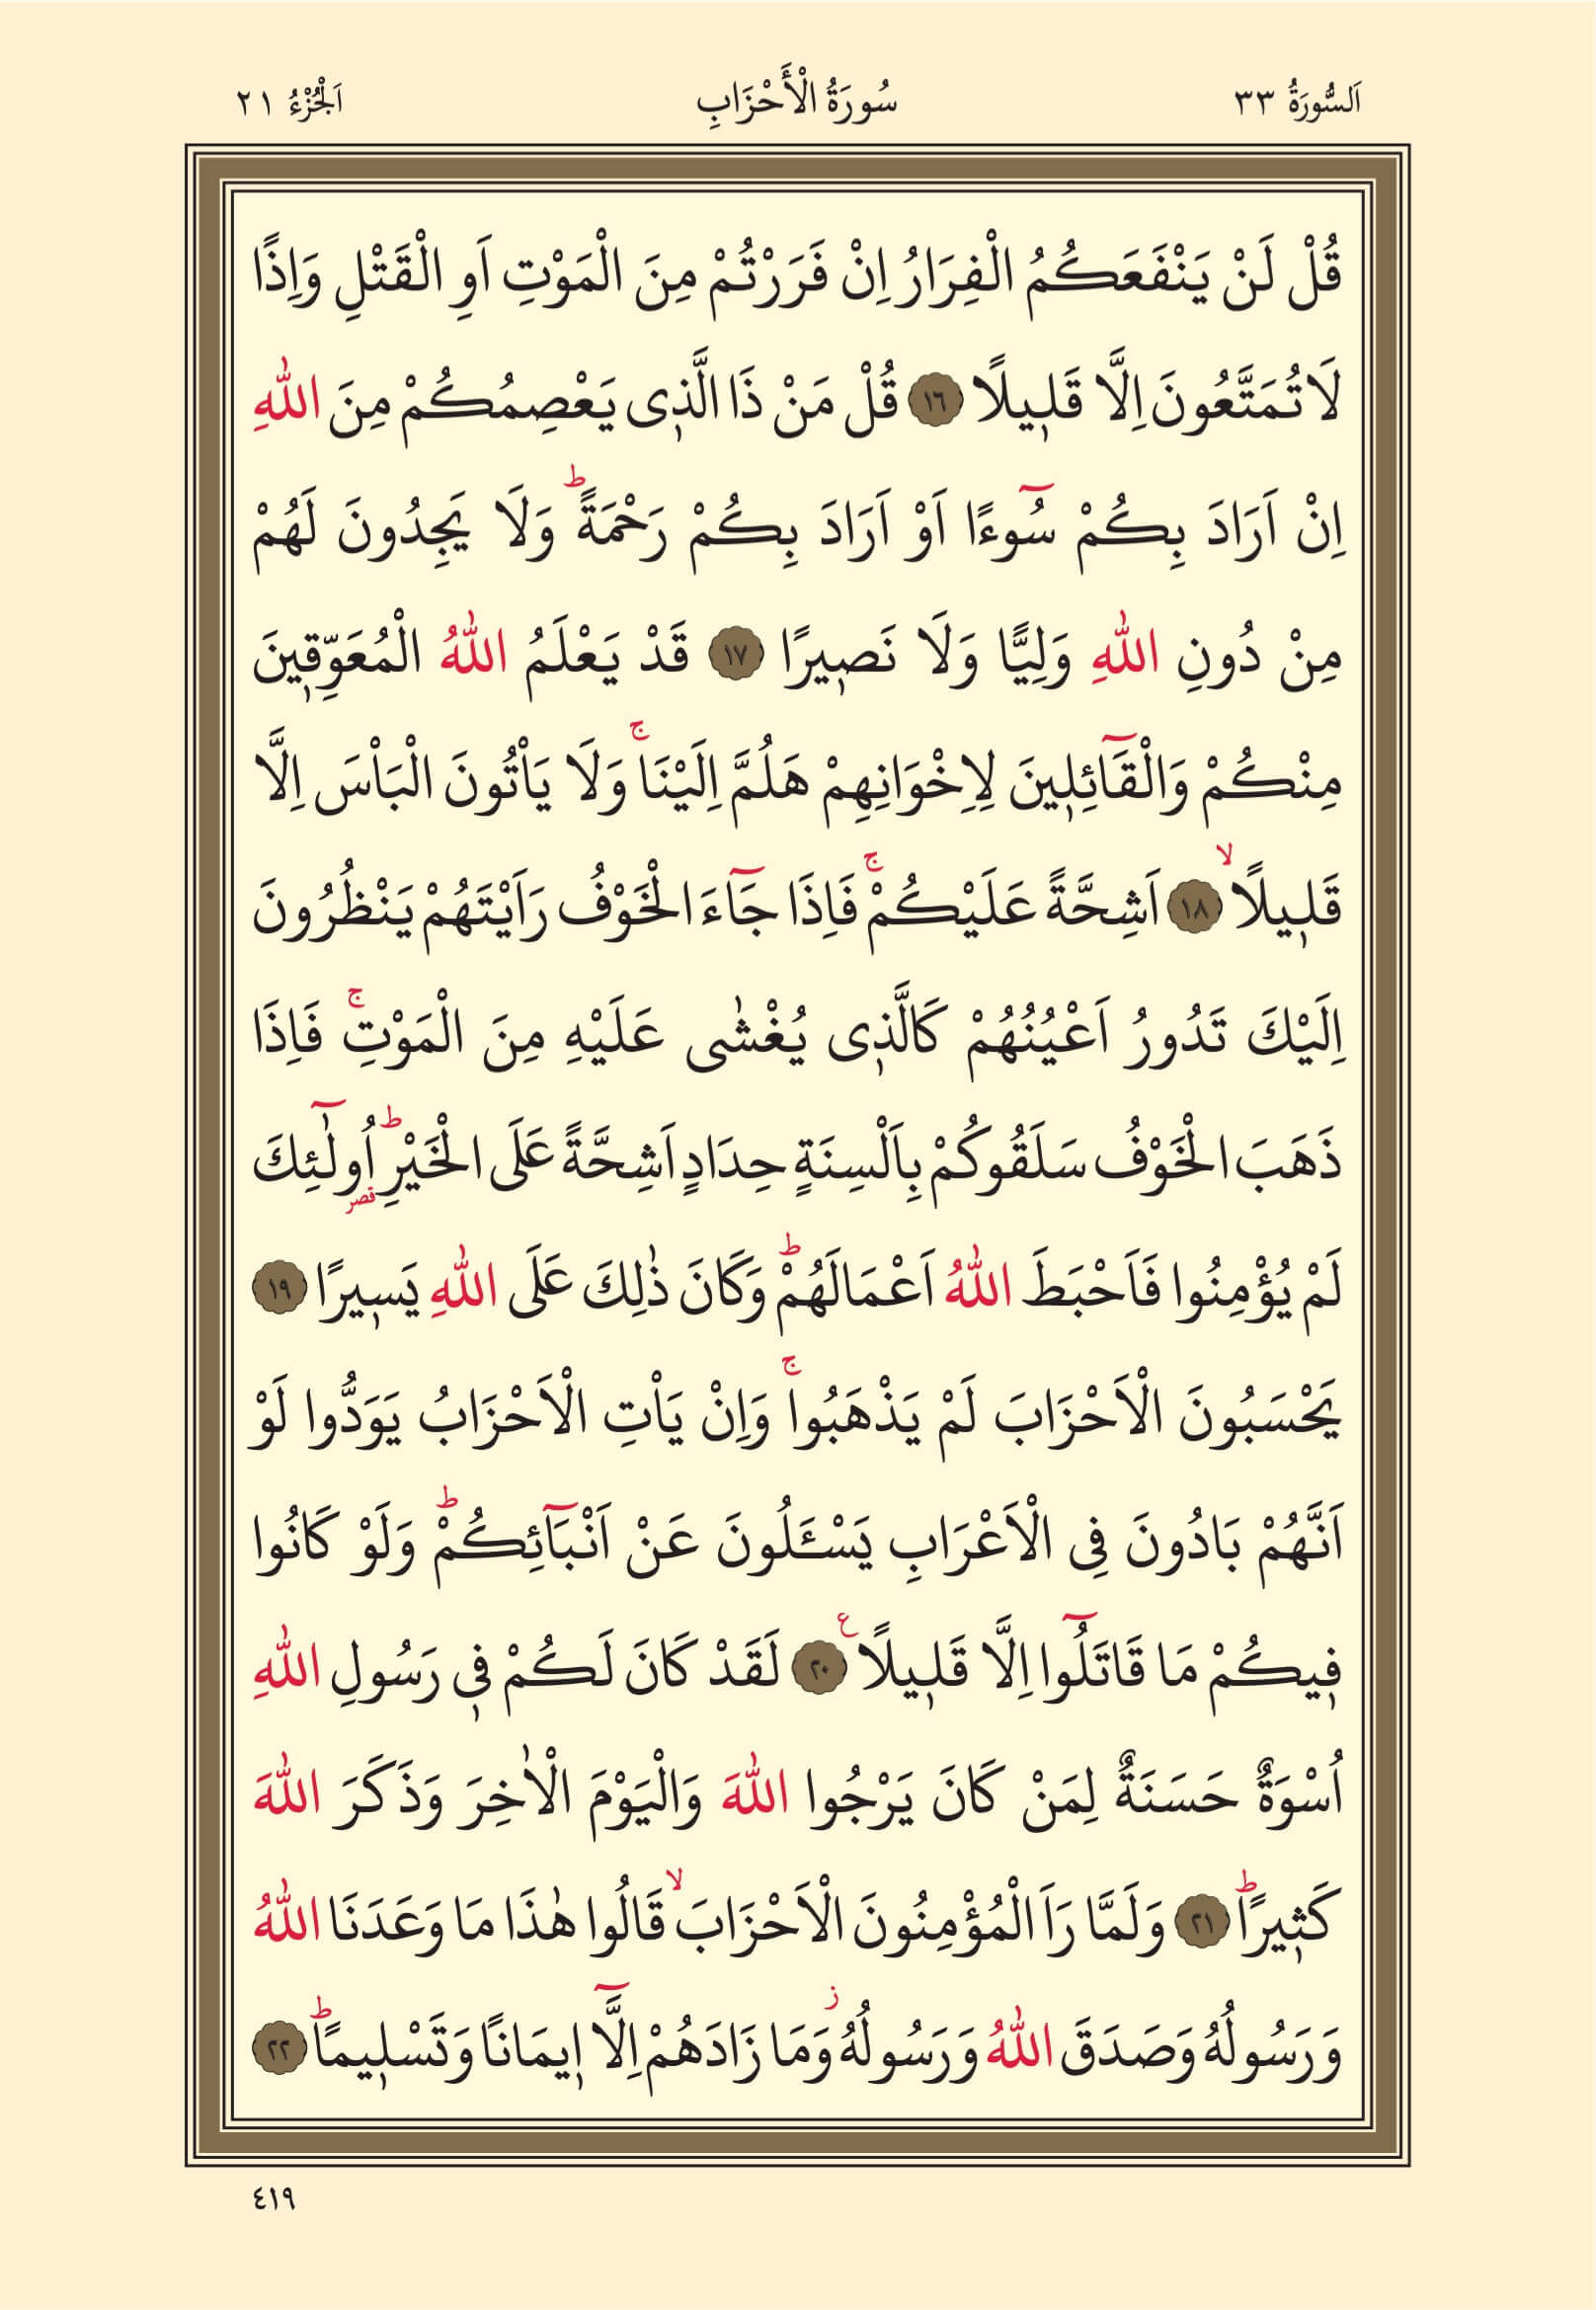 اَلسُّورَةُ ٣٣ سُورَةُ الْأَحْزَابِ اَلْجُزْءُ ٢١
قُلْ لَنْ يَنْفَعَكُمُ الْفِرَارُ اِنْ فَرَرْتُمْ مِنَ الْمَوْتِ اَوِ الْقَتْلِ وَاِذًا
لَا تُمَتَّعُونَ اِلَّا قَلٖيلًا ١٦ قُلْ مَنْ ذَا الَّذٖى يَعْصِمُكُمْ مِنَ اللّٰهِ
اِنْ اَرَادَ بِكُمْ سُٓوءًا اَوْ اَرَادَ بِكُمْ رَحْمَةًؕ وَلَا يَجِدُونَ لَهُمْ
مِنْ دُونِ اللّٰهِ وَلِيًّا وَلَا نَصٖيرًا ١٧ قَدْ يَعْلَمُ اللّٰهُ الْمُعَوِّقٖينَ
مِنْكُمْ وَالْقَٓائِلٖينَ لِاِخْوَانِهِمْ هَلُمَّ اِلَيْنَاۚ وَلَا يَاْتُونَ الْبَاْسَ اِلَّا
قَلٖيلًاۙ ١٨ اَشِحَّةً عَلَيْكُمْۚ فَاِذَا جَٓاءَ الْخَوْفُ رَاَيْتَهُمْ يَنْظُرُونَ
اِلَيْكَ تَدُورُ اَعْيُنُهُمْ كَالَّذٖى يُغْشٰى عَلَيْهِ مِنَ الْمَوْتِۚ فَاِذَا
ذَهَبَ الْخَوْفُ سَلَقُوكُمْ بِاَلْسِنَةٍ حِدَادٍ اَشِحَّةً عَلَى الْخَيْرِؕ اُو۬لٰٓئِكَ
قصر
لَمْ يُؤْمِنُوا فَاَحْبَطَ اللّٰهُ اَعْمَالَهُمْؕ وَكَانَ ذٰلِكَ عَلَى اللّٰهِ يَسٖيرًا ١٩
يَحْسَبُونَ الْاَحْزَابَ لَمْ يَذْهَبُواۚ وَاِنْ يَاْتِ الْاَحْزَابُ يَوَدُّوا لَوْ
اَنَّهُمْ بَادُونَ فِى الْاَعْرَابِ يَسْـَٔلُونَ عَنْ اَنْبَٓائِكُمْؕ وَلَوْ كَانُوا
فٖيكُمْ مَا قَاتَلُٓوا اِلَّا قَلٖيلًا ع ٢٠ لَقَدْ كَانَ لَكُمْ فٖى رَسُولِ اللّٰهِ
اُسْوَةٌ حَسَنَةٌ لِمَنْ كَانَ يَرْجُوا اللّٰهَ وَالْيَوْمَ الْاٰخِرَ وَذَكَرَ اللّٰهَ
كَثٖيرًاؕ ٢١ وَلَمَّا رَاَ الْمُؤْمِنُونَ الْاَحْزَابَۙ قَالُوا هٰذَا مَا وَعَدَنَا اللّٰهُ
وَرَسُولُهُ وَصَدَقَ اللّٰهُ وَرَسُولُهُؗ وَمَا زَادَهُمْ اِلَّٓا اٖيمَانًا وَتَسْلٖيمًاؕ ٢٢
٤١٩